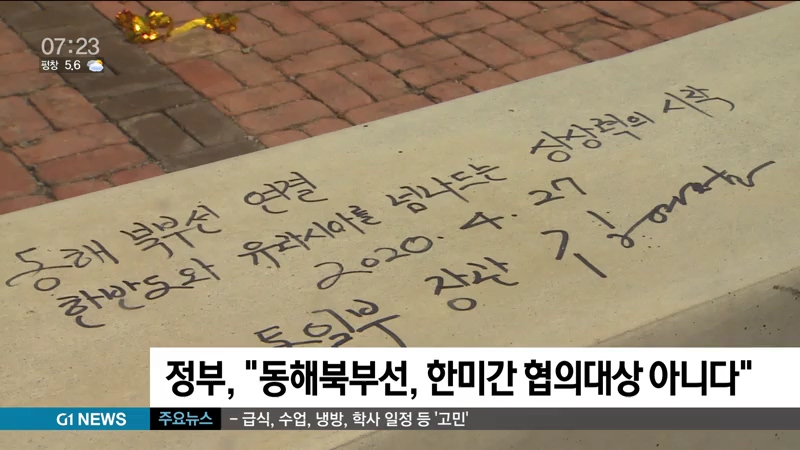 07:23
평창 5.6
동해 북부선 연결
한반도와 유라시아를 넘나드는 상상력의 시작
2020. 4. 27
통일부 장관 김연철
정부, "동해북부선, 한미간 협의대상 아니다"
G1 NEWS
주요뉴스
– 급식, 수업, 냉방, 학사 일정 등 '고민'